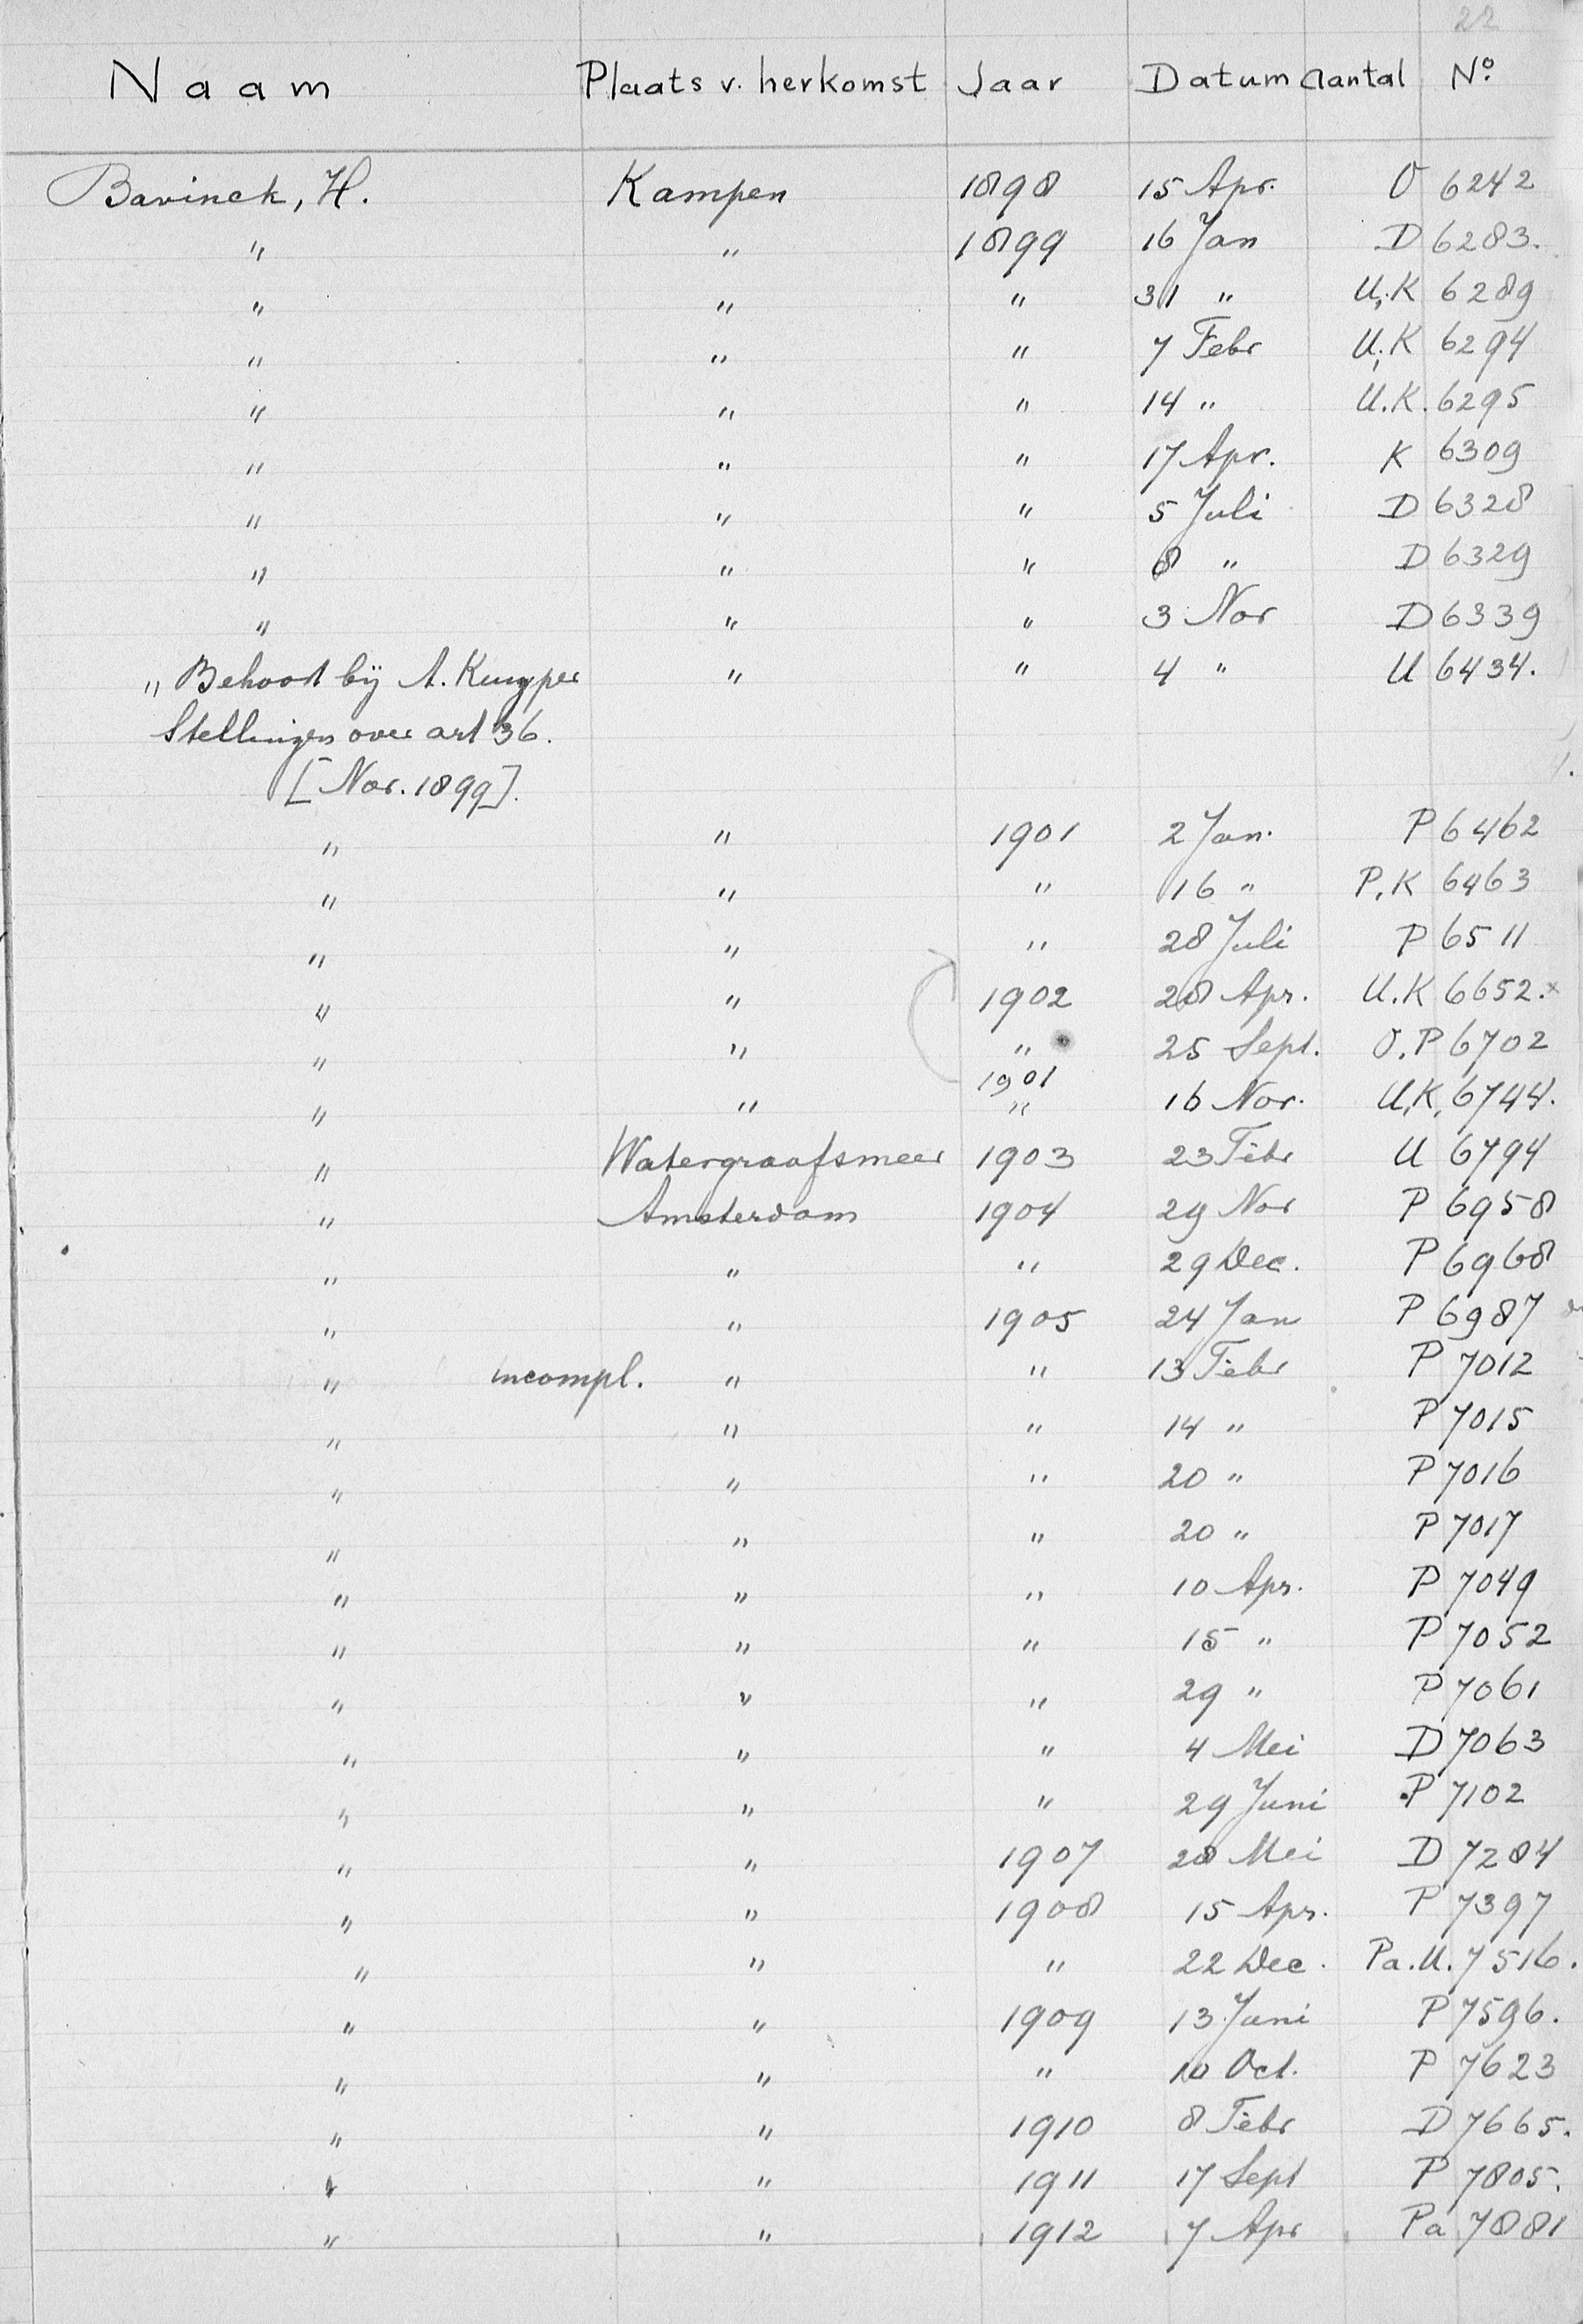 22
Naam Plaats v. herkomst Jaar Datum Aantal No.
Bavinck, H. Kampen 1898 15 Apr. O 6242
" " 1899 16 Jan D 6283.
" " " 31 " U.K 6289
" " " 7 Febr U.K 6294
" " " 14 " U.K. 6295
" " " 17 Apr. K 6309
" " " 5 Juli D 6328
" " " 8 " D 6329
" " " 3 Nov D 6339
" Behoort bij A. Kuyper " " 4 " U 6434.
Stellingen over art 36.
[Nov. 1899].
" " 1901 2 Jan. P 6462
" " " 16 " P.K 6463
" " " 28 Juli P 6511
" " 1902 28 Apr. U.K 6652.x
" " " 25 Sept. O.P 6702
1901
" " " 16 Nov. U.K. 6744.
" Watergraafsmeer 1903 23 Febr U 6794
" Amsterdam 1904 29 Nov P 6958
" " " 29 Dec. P 6968
" " 1905 24 Jan P 6987
" incompl. " " 13 Febr P 7012
" " " 14 " P 7015
" " " 20 " P 7016
" " " 20 " P 7017
" " " 10 Apr. P 7049
" " " 15 " P 7052
" " " 29 " P 7061
" " " 4 Mei D 7063
" " " 29 Juni P 7102
" " 1907 28 Mei D 7284
" " 1908 15 Apr. P 7397
" " " 22 Dec. Pa.U. 7516.
" " 1909 13 Juni P 7596.
" " " 10 Oct. P 7623
" " 1910 8 Febr D 7665.
" " 1911 17 Sept P 7805.
" " 1912 7 Apr Pa 7881